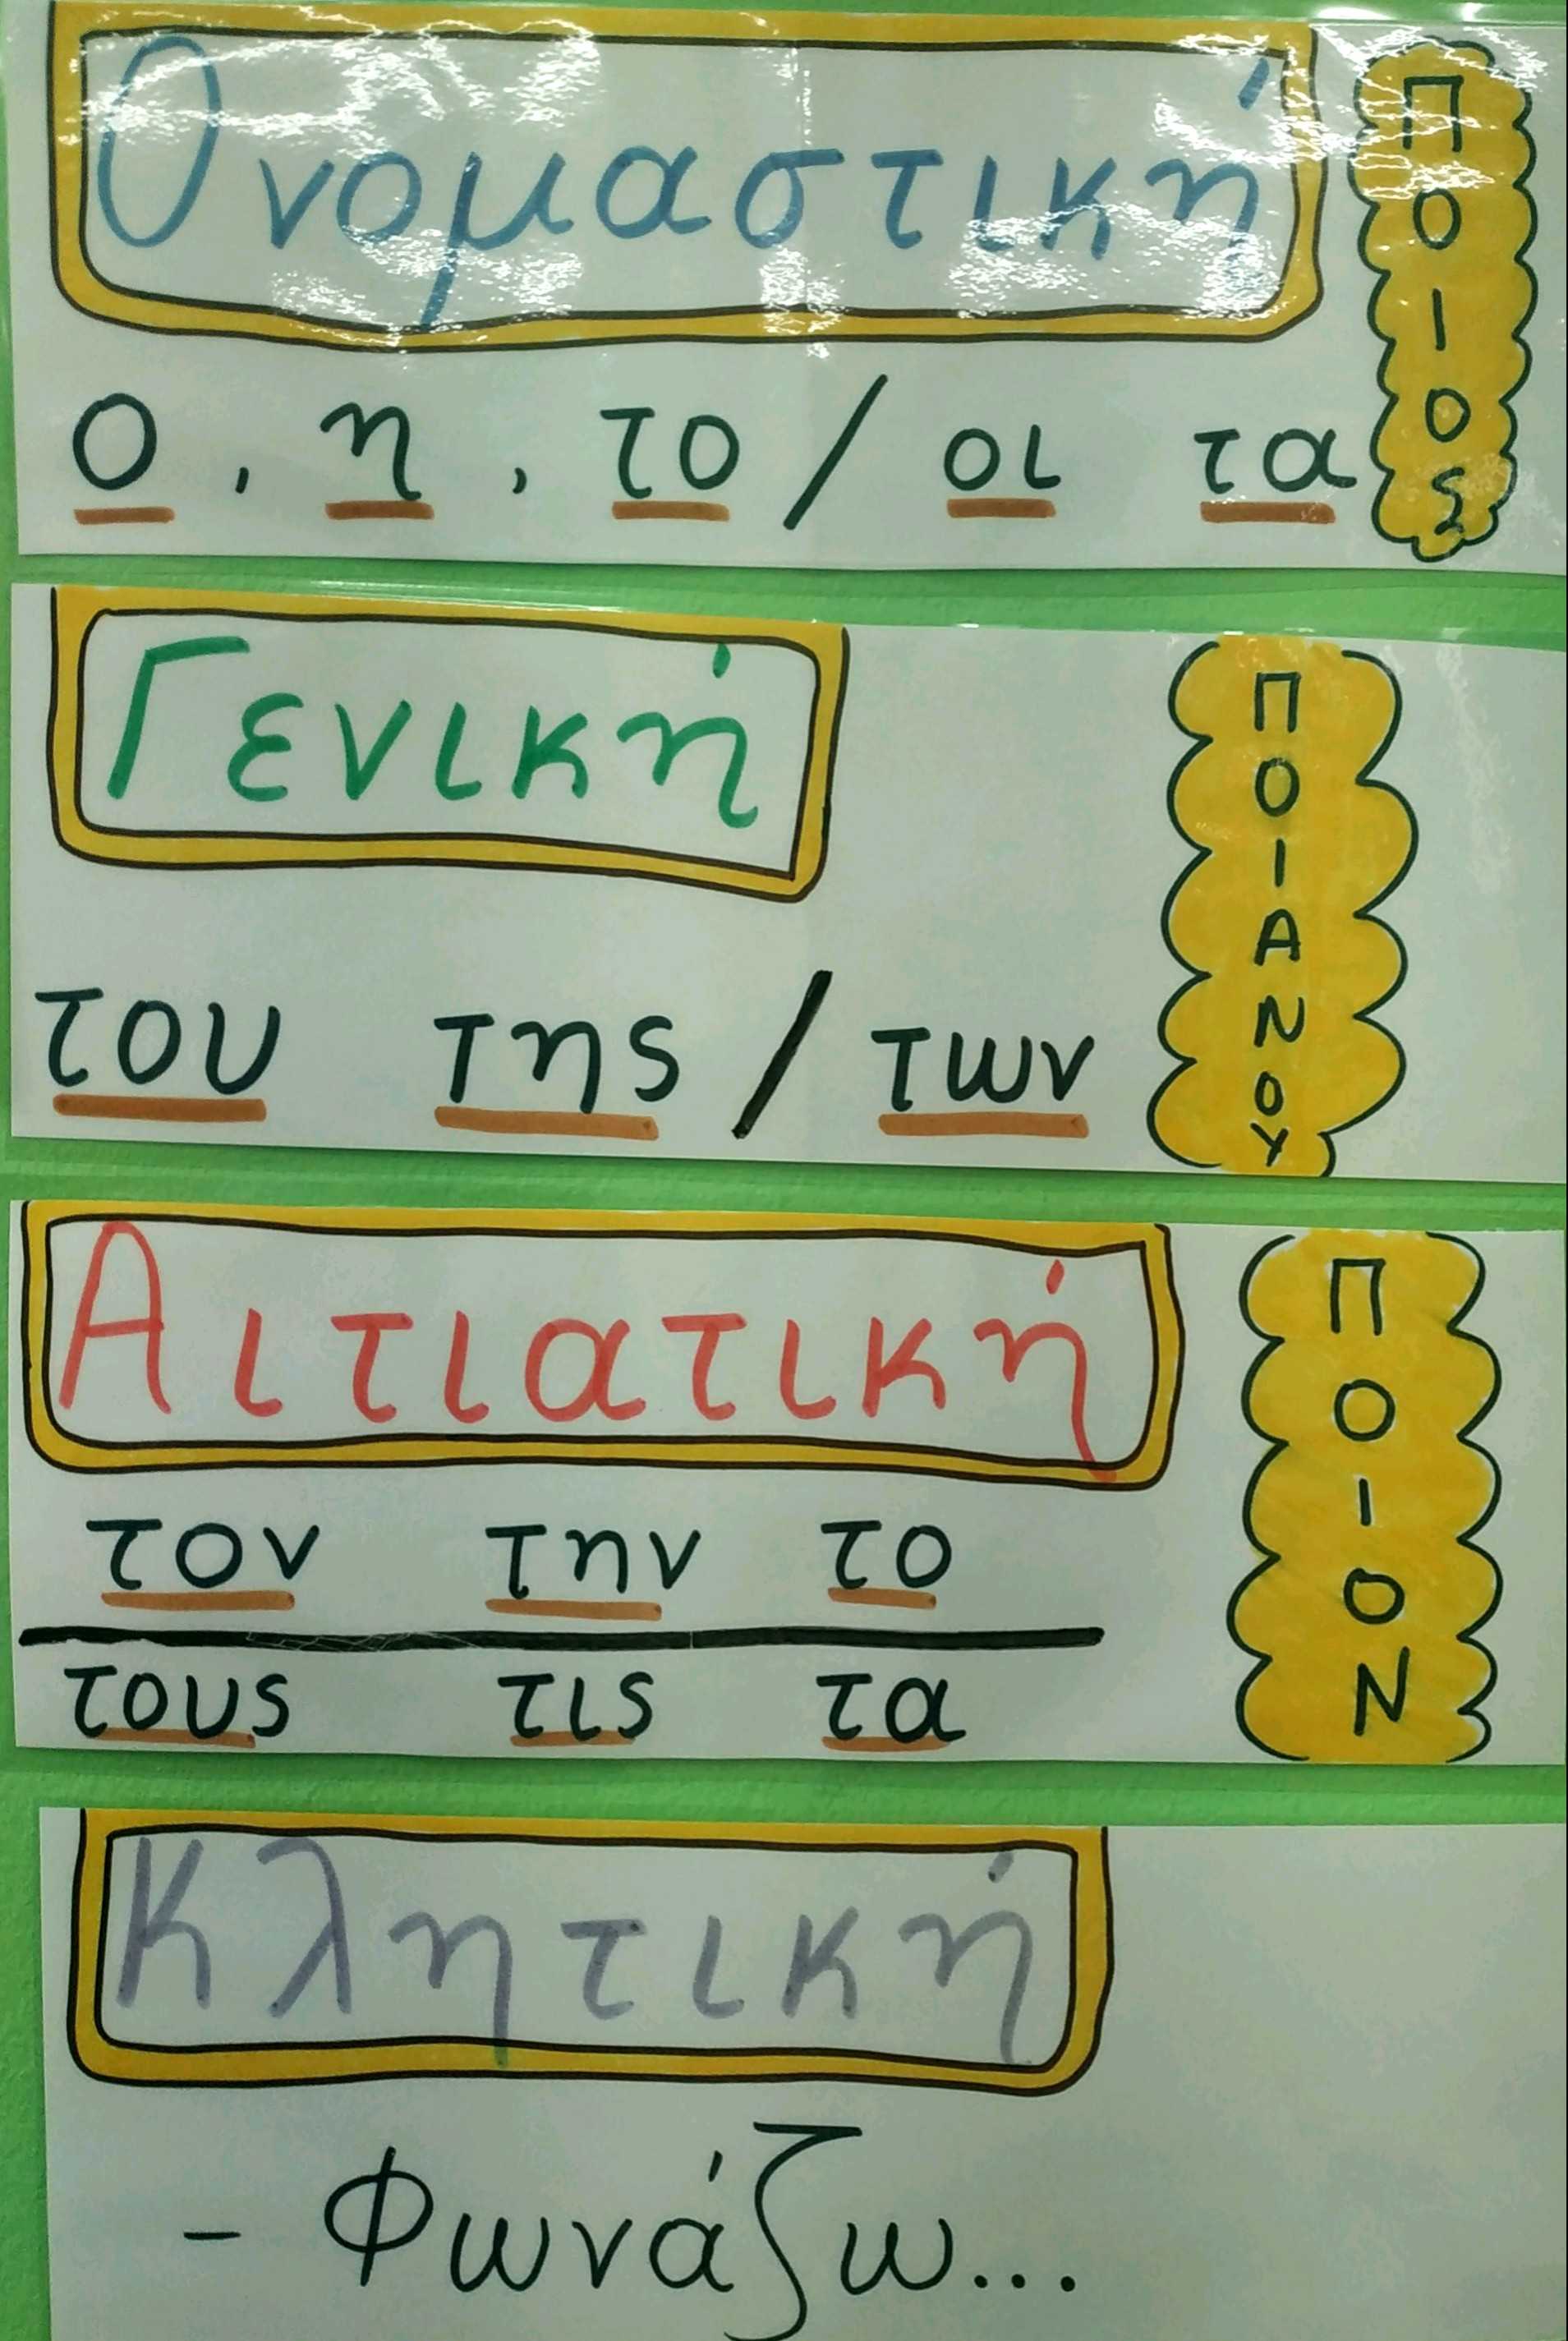 Ονομαστική
ΠΟΙΟς
ο, η, το / οι τα
Γενική
ΠΟΙΑΝΟΥ
του της / των
Αιτιατική
ΠΟΙΟΝ
τον την το
τους τις τα
Κλητική
- Φωνάζω...